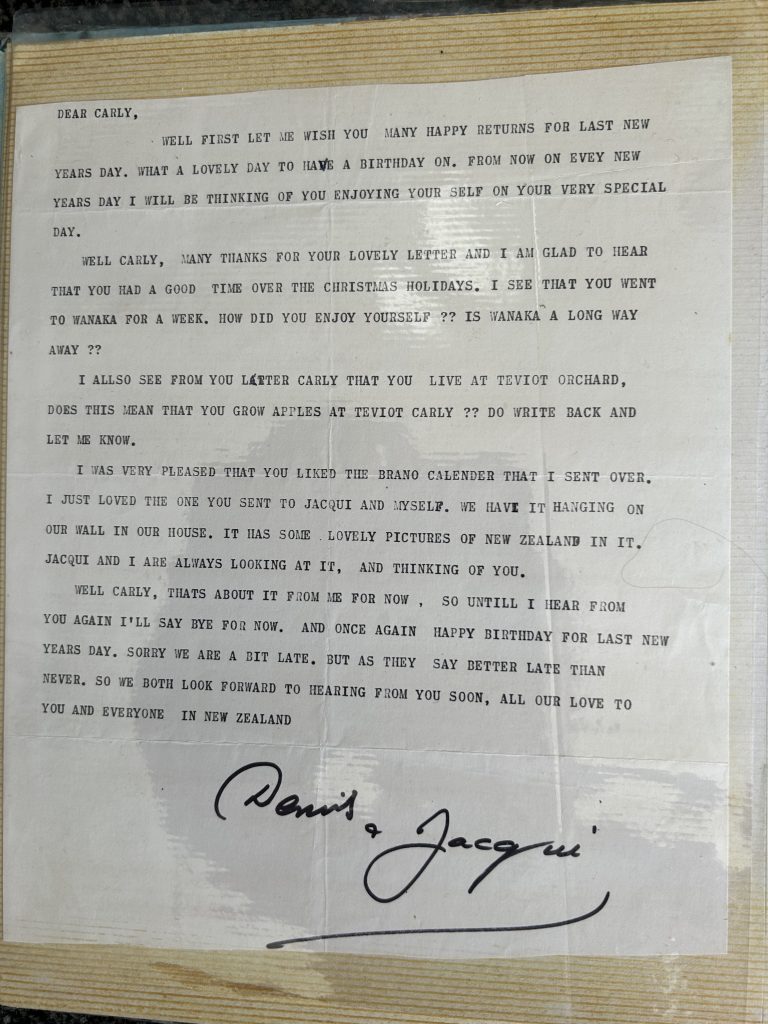 DEAR CARLY,
WELL FIRST LET ME WISH YOU MANY HAPPY RETURNS FOR LAST NEW
YEARS DAY. WHAT A LOVELY DAY TO HAVE A BIRTHDAY ON. FROM NOW ON EVEY NEW
YEARS DAY I WILL BE THINKING OF YOU ENJOYING YOUR SELF ON YOUR VERY SPECIAL
DAY.
WELL CARLY, MANY THANKS FOR YOUR LOVELY LETTER AND I AM GLAD TO HEAR
THAT YOU HAD A GOOD TIME OVER THE CHRISTMAS HOLIDAYS. I SEE THAT YOU WENT
TO WANAKA FOR A WEEK. HOW DID YOU ENJOY YOURSELF ?? IS WANAKA A LONG WAY
AWAY ??
I ALLSO SEE FROM YOU LETTER CARLY THAT YOU LIVE AT TEVIOT ORCHARD,
DOES THIS MEAN THAT YOU GROW APPLES AT TEVIOT CARLY ?? DO WRITE BACK AND
LET ME KNOW.
I WAS VERY PLEASED THAT YOU LIKED THE BRANO CALENDER THAT I SENT OVER.
I JUST LOVED THE ONE YOU SENT TO JACQUI AND MYSELF. WE HAVE IT HANGING ON
OUR WALL IN OUR HOUSE. IT HAS SOME LOVELY PICTURES OF NEW ZEALAND IN IT.
JACQUI AND I ARE ALWAYS LOOKING AT IT, AND THINKING OF YOU.
WELL CARLY, THATS ABOUT IT FROM ME FOR NOW , SO UNTILL I HEAR FROM
YOU AGAIN I'LL SAY BYE FOR NOW. AND ONCE AGAIN HAPPY BIRTHDAY FOR LAST NEW
YEARS DAY. SORRY WE ARE A BIT LATE. BUT AS THEY SAY BETTER LATE THAN
NEVER. SO WE BOTH LOOK FORWARD TO HEARING FROM YOU SOON, ALL OUR LOVE TO
YOU AND EVERYONE IN NEW ZEALAND
Denis & Jacqui